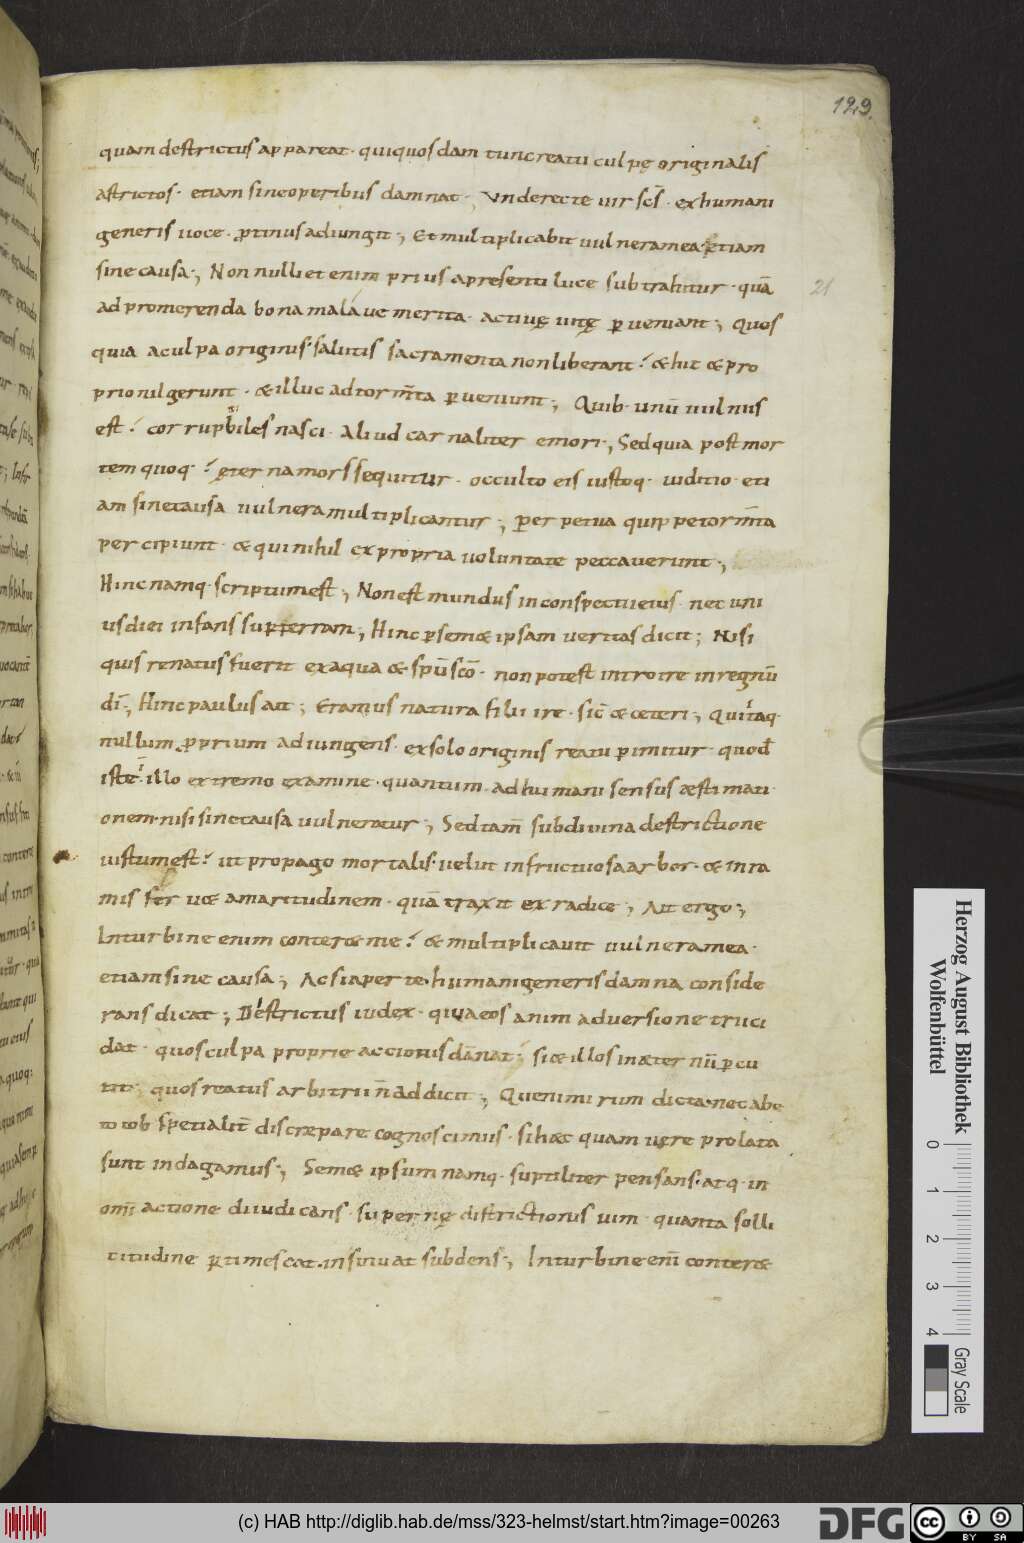 129.
quam destrictus appareat · qui quosdam tunc reatu culpę originalis
astrictos · etiam sine operibus damnat ·, Unde recte uir scs̄ · ex humani
generis uoce · ꝓtinus adiungit ;, Et multiplicabit uulnera mea · etiam
sine causa ;, Non nulli et enim prius a presenti luce subtrahitur · quā
21
ad promerenda bona mala ue merita · actiuę uitę ꝑueniant ;, Quos
quia a culpa originis · salutis sacramenta non liberant ? & hic & pro
prio nil gerunt · & illuc ad torm̄ta ꝑueniunt ;, Quib · unū uulnus
est ? corruptibiles nasci · Aliud carnaliter emori ·, Sed quia post mor
tem quoq · ? ęterna mors sequitur · occulto eis iustoq · iuditio · eti
am sine causa uulnera multiplicantur ;, ꝑpetua quippe torm̄ta
percipiunt · & qui nihil ex propria uoluntate peccauerunt ·,
Hinc namq · scriptum est ;, Non est mundus in conspectu eius · nec uni
us diei infans super terram ;, Hinc ꝑ sem& ipsam ueritas dicit ; Nisi
quis renatus fuerit ex aqua & spū scō · non potest introire in regnū
dī ;, Hinc paulus ait ; Eramus natura filii ire · sic̄ & ceteri ;, Qui itaq ·
nullum ꝓprium adiungens · ex solo originis reatu ꝑimitur · quod
iste ? illo extremo examine · quantum ad humani sensus æstimati
onem · nisi sine causa uulneratur ;, Sed tam̄ sub diuina destrictione
iustum est ? ut propago mortalis · uelut infructuosa arbor · & in ra
mis seruæ amaritudinem · quā traxit ex radice ;, Ait ergo ;,
In turbine enim conter& me ? & multiplicauit uulnera mea ·
etiam sine causa ;, Ac si aperte · humani generis damna conside
rans dicat ; Destrictus iudex · qiua eos animaduersione truci
dat · quos culpa proprie actionis dānat ; si & illos in æternū ꝑcu
tit · quos reatus arbitrii n̄ addicit ;, Que nimirum dicta · nec a be
to iob spetialit̄ discrepare cognoscimus · si hæc quam uere prolata
sunt indagamus ;, Sem& ipsum namq · suptiliter pensans · atq · in
omī actione diiudicans · supernę districtionis uim · quanta solli
citudine ꝑtimescat · insinuat subdens ;, In turbine enī conter&
Herzog August Bibliothek
Wolfenbüttel
0 1 2 3 4
Gray Scale
(c) HAB http://diglib.hab.de/mss/323-helmst/start.htm?image=00263
DFG
cc BY SA